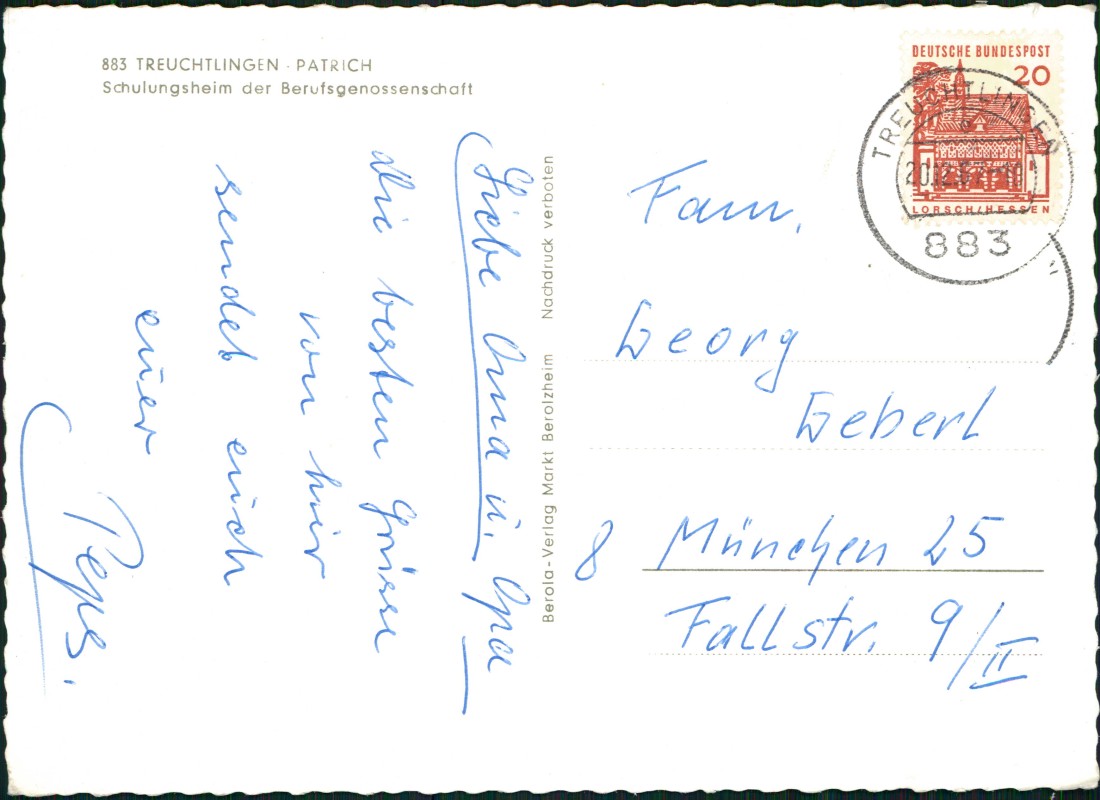 883 TREUCHTLINGEN · PATRICH
Schulungsheim der Berufsgenossenschaft
Liebe Oma u. Opa
die besten Grüsse
von hier
sendet euch
euer
Peps.
Berola-Verlag Markt Berolzheim Nachdruck verboten
DEUTSCHE BUNDESPOST
20
LORSCH/HESSEN
TREUCHTLINGEN
a
883
Fam.
Georg
Geberl
8 München 25
Fallstr. 9/II